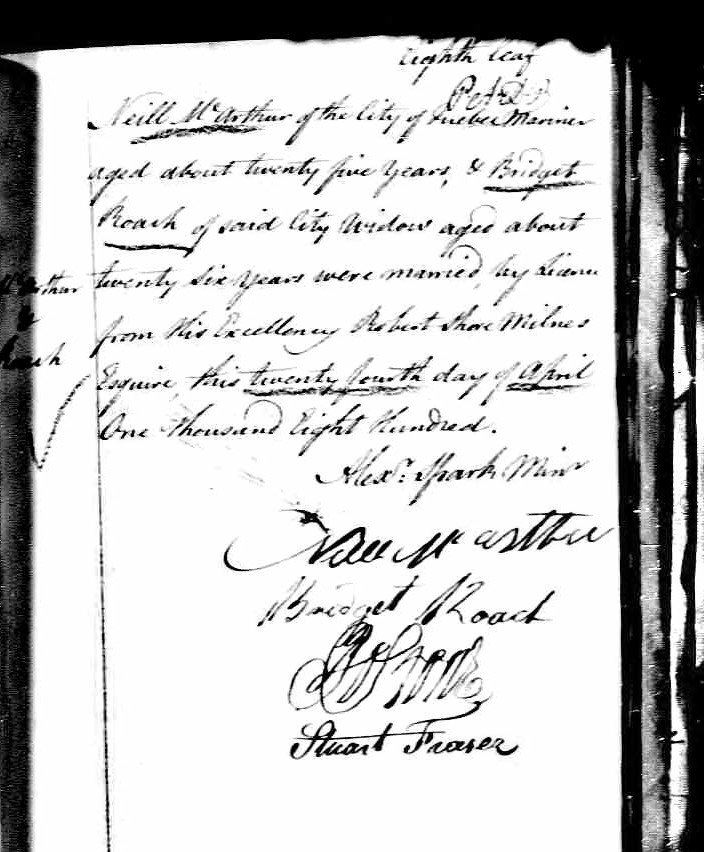 Eighth leaf
Neill McArthur of the City of Quebec Mariner
aged about twenty five years, & Bridget
Roach of said City Widow aged about
twenty six years were married, by Licence
from His Excellency Robert Shore Milnes
Esquire, this twenty fourth day of April
One thousand Eight Hundred.
McArthur
&
Roach
Alexr: Spark Minr
Neill McArthur
Bridget Roach
Stuart Fraser